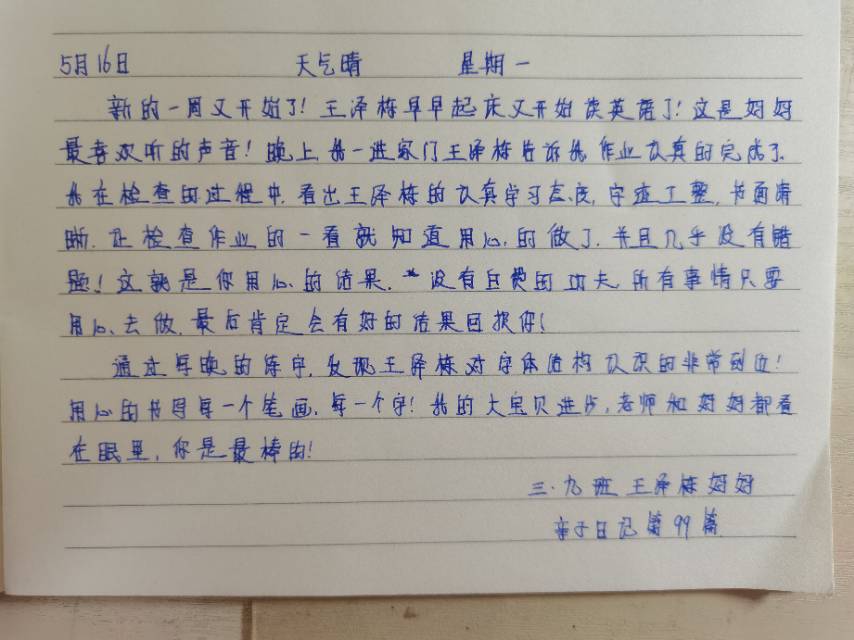 5月16日 天气晴 星期一
新的一周又开始了！王泽栋早早起床又开始读英语了！这是妈妈
最喜欢听的声音！晚上，我一进家门王泽栋告诉我作业认真的完成了.
我在检查的过程中，看出王泽栋的认真学习态度，字迹工整，书面清
晰.让检查作业的一看就知道用心的做了.并且几乎没有错
题！这就是你用心的结果.没有白费的功夫.所有事情只要
用心去做.最后肯定会有好的结果回报你！
通过每晚的练字.发现王泽栋对字体结构认识的非常到位！
用心的书写每一个笔画.每一个字！我的大宝贝进步,老师和妈妈都看
在眼里，你是最棒的！
三.九班 王泽栋妈妈
亲子日记第99篇